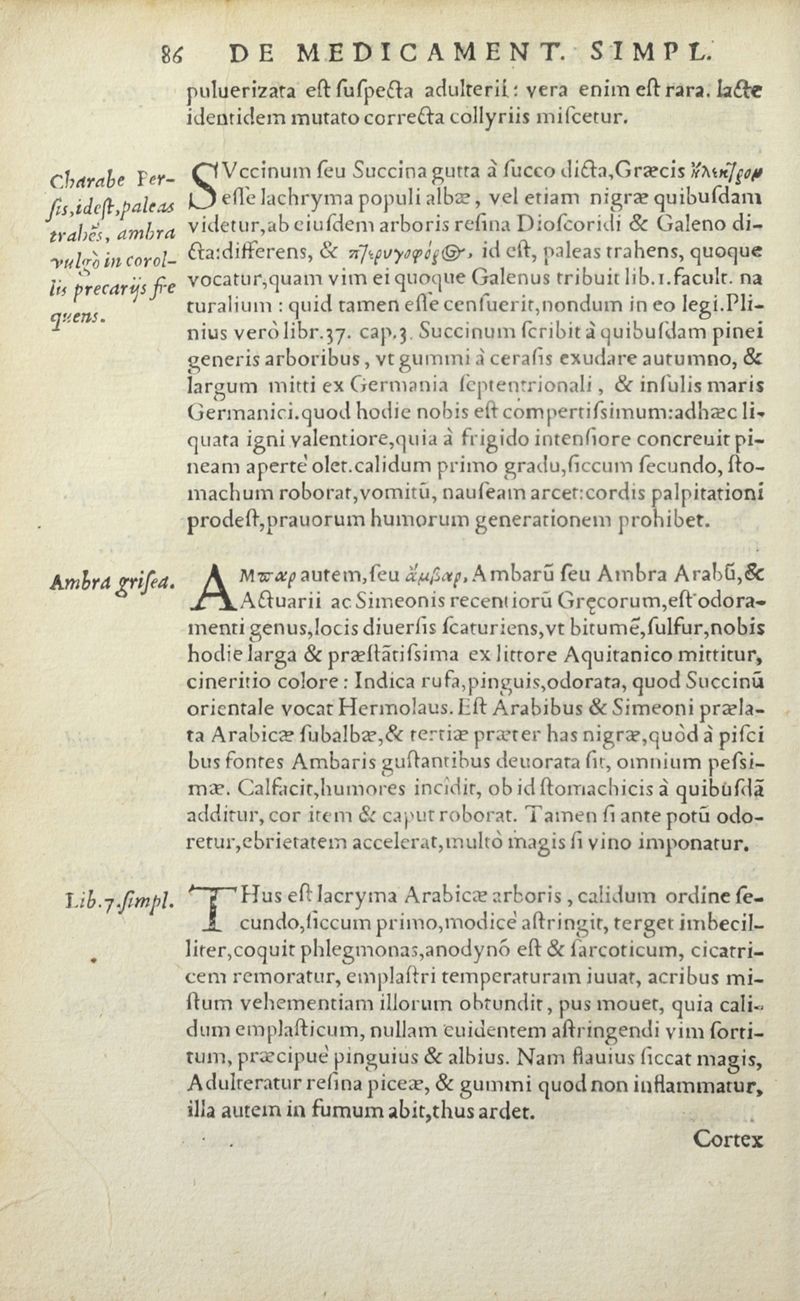 86 DE MEDICAMENT. SIMPL.
puluerizata eſt ſuſpecta adulterii: vera enim eſt rara. lacte
identidem mutato correcta collyriis miſcetur.
Charabe Per-
ſis, ideſt, paleas
trahẽs, ambra
vulgò in corol-
lis precarijs fre
quens.
SVccinum ſeu Succina gutta à ſucco dicta, Græcis
eſſe lachryma populi albæ, vel etiam nigræ quibuſdam
videtur, ab eiuſdem arboris reſina Dioſcoridi & Galeno di-
cta: differens, & id eſt, paleas trahens, quoque
vocatur, quam vim ei quoque Galenus tribuit lib.1. facult. na
turalium : quid tamen eſſe cenſuerit, nondum in eo legi. Pli-
nius verò libr.37. cap.3. Succinum ſcribit à quibuſdam pinei
generis arboribus, vt gummi à ceraſis exudare autumno, &
largum mitti ex Germania ſeptentrionali, & inſulis maris
Germanici. quod hodie nobis eſt compertiſsimum: adhæc li-
quata igni valentiore, quia à frigido intenſiore concreuit pi-
neam apertè olet. calidum primo gradu, ſiccum ſecundo, ſto-
machum roborat, vomitũ, nauſeam arcet: cordis palpitationi
prodeſt, prauorum humorum generationem prohibet.
Ambra griſea.
AMπαρ autem, ſeu ἄμβαρ, Ambarũ ſeu Ambra Arabũ, &
Actuarii ac Simeonis recentiorũ Gręcorum, eſt odora-
menti genus, locis diuerſis ſcaturiens, vt bitumẽ, ſulfur, nobis
hodie larga & præſtãtiſsima ex littore Aquitanico mittitur,
cineritio colore : Indica rufa, pinguis, odorata, quod Succinũ
orientale vocat Hermolaus. Eſt Arabibus & Simeoni præla-
ta Arabicæ ſubalbæ, & tertiæ præter has nigræ, quòd à piſci
bus fontes Ambaris guſtantibus deuorata fit, omnium peſsi-
mæ. Calfacit, humores incidit, ob id ſtomachicis à quibuſdã
additur, cor item & caput roborat. Tamen ſi ante potũ odo-
retur, ebrietatem accelerat, multò magis ſi vino imponatur.
Lib.7. ſimpl.
THus eſt lacryma Arabicæ arboris, calidum ordine ſe-
cundo, ſiccum primo, modicè aſtringit, terget imbecil-
liter, coquit phlegmonas, anodynõ eſt & ſarcoticum, cicatri-
cem remoratur, emplaſtri temperaturam iuuat, acribus mi-
ſtum vehementiam illorum obtundit, pus mouet, quia cali-
dum emplaſticum, nullam euidentem aſtringendi vim ſorti-
tum, præcipuè pinguius & albius. Nam flauius ſiccat magis,
Adulteratur reſina piceæ, & gummi quod non inflammatur,
illa autem in fumum abit, thus ardet.
Cortex